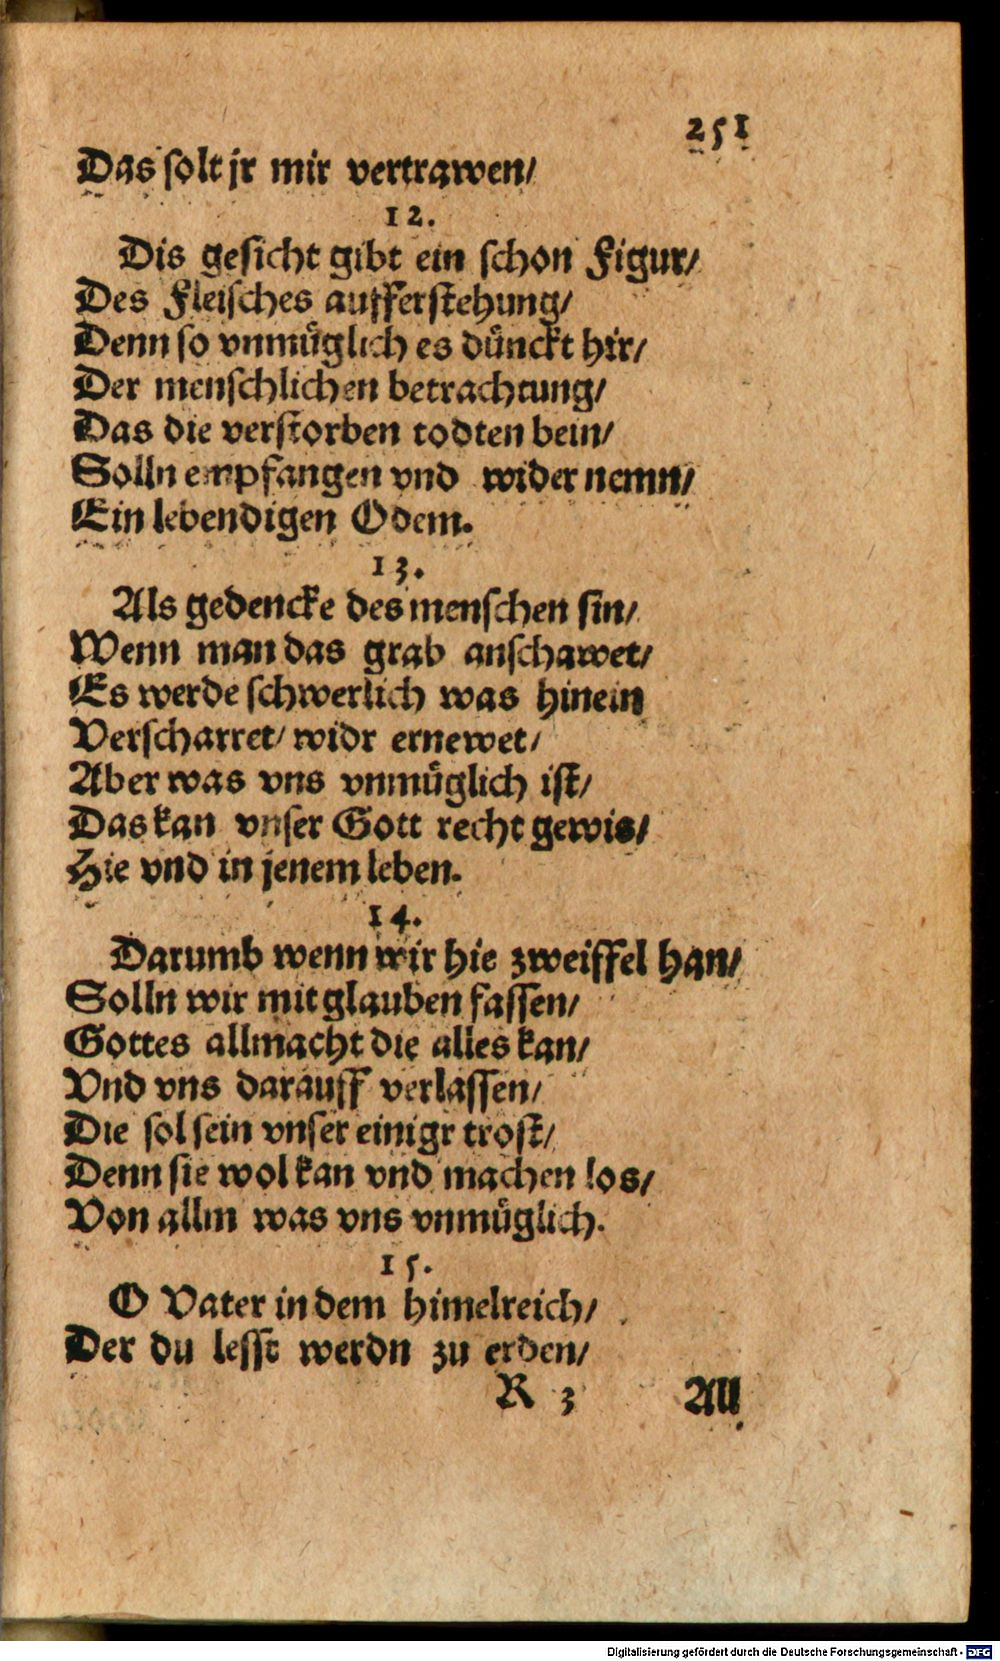 251
Das solt jr mir vertrawen/
12.
Dis gesicht gibt ein schon Figur/
Des Fleisches aufferstehung/
Denn so vnmüglich es dünckt hir/
Der menschlichen betrachtung/
Das die verstorben todten bein/
Solln empfangen vnd wider nemn/
Ein lebendigen Odem.
13.
Als gedencke des menschen sin/
Wenn man das grab anschawet/
Es werde schwerlich was hinein
Verscharret/ widr ernewet/
Aber was vns vnmüglich ist/
Das kan vnser Gott recht gewis/
Hie vnd in jenem leben.
14.
Darumb wenn wir hie zweiffel han/
Solln wir mit glauben fassen/
Gottes allmacht die alles kan/
Vnd vns darauff verlassen/
Die sol sein vnser einigr trost/
Denn sie wol kan vnd machen los/
Von allm was vns vnmüglich.
15.
O Vater in dem himelreich/
Der du lesst werdn zu erden/
R 3 All
Digitalisierung gefördert durch die Deutsche Forschungsgemeinschaft - DFG